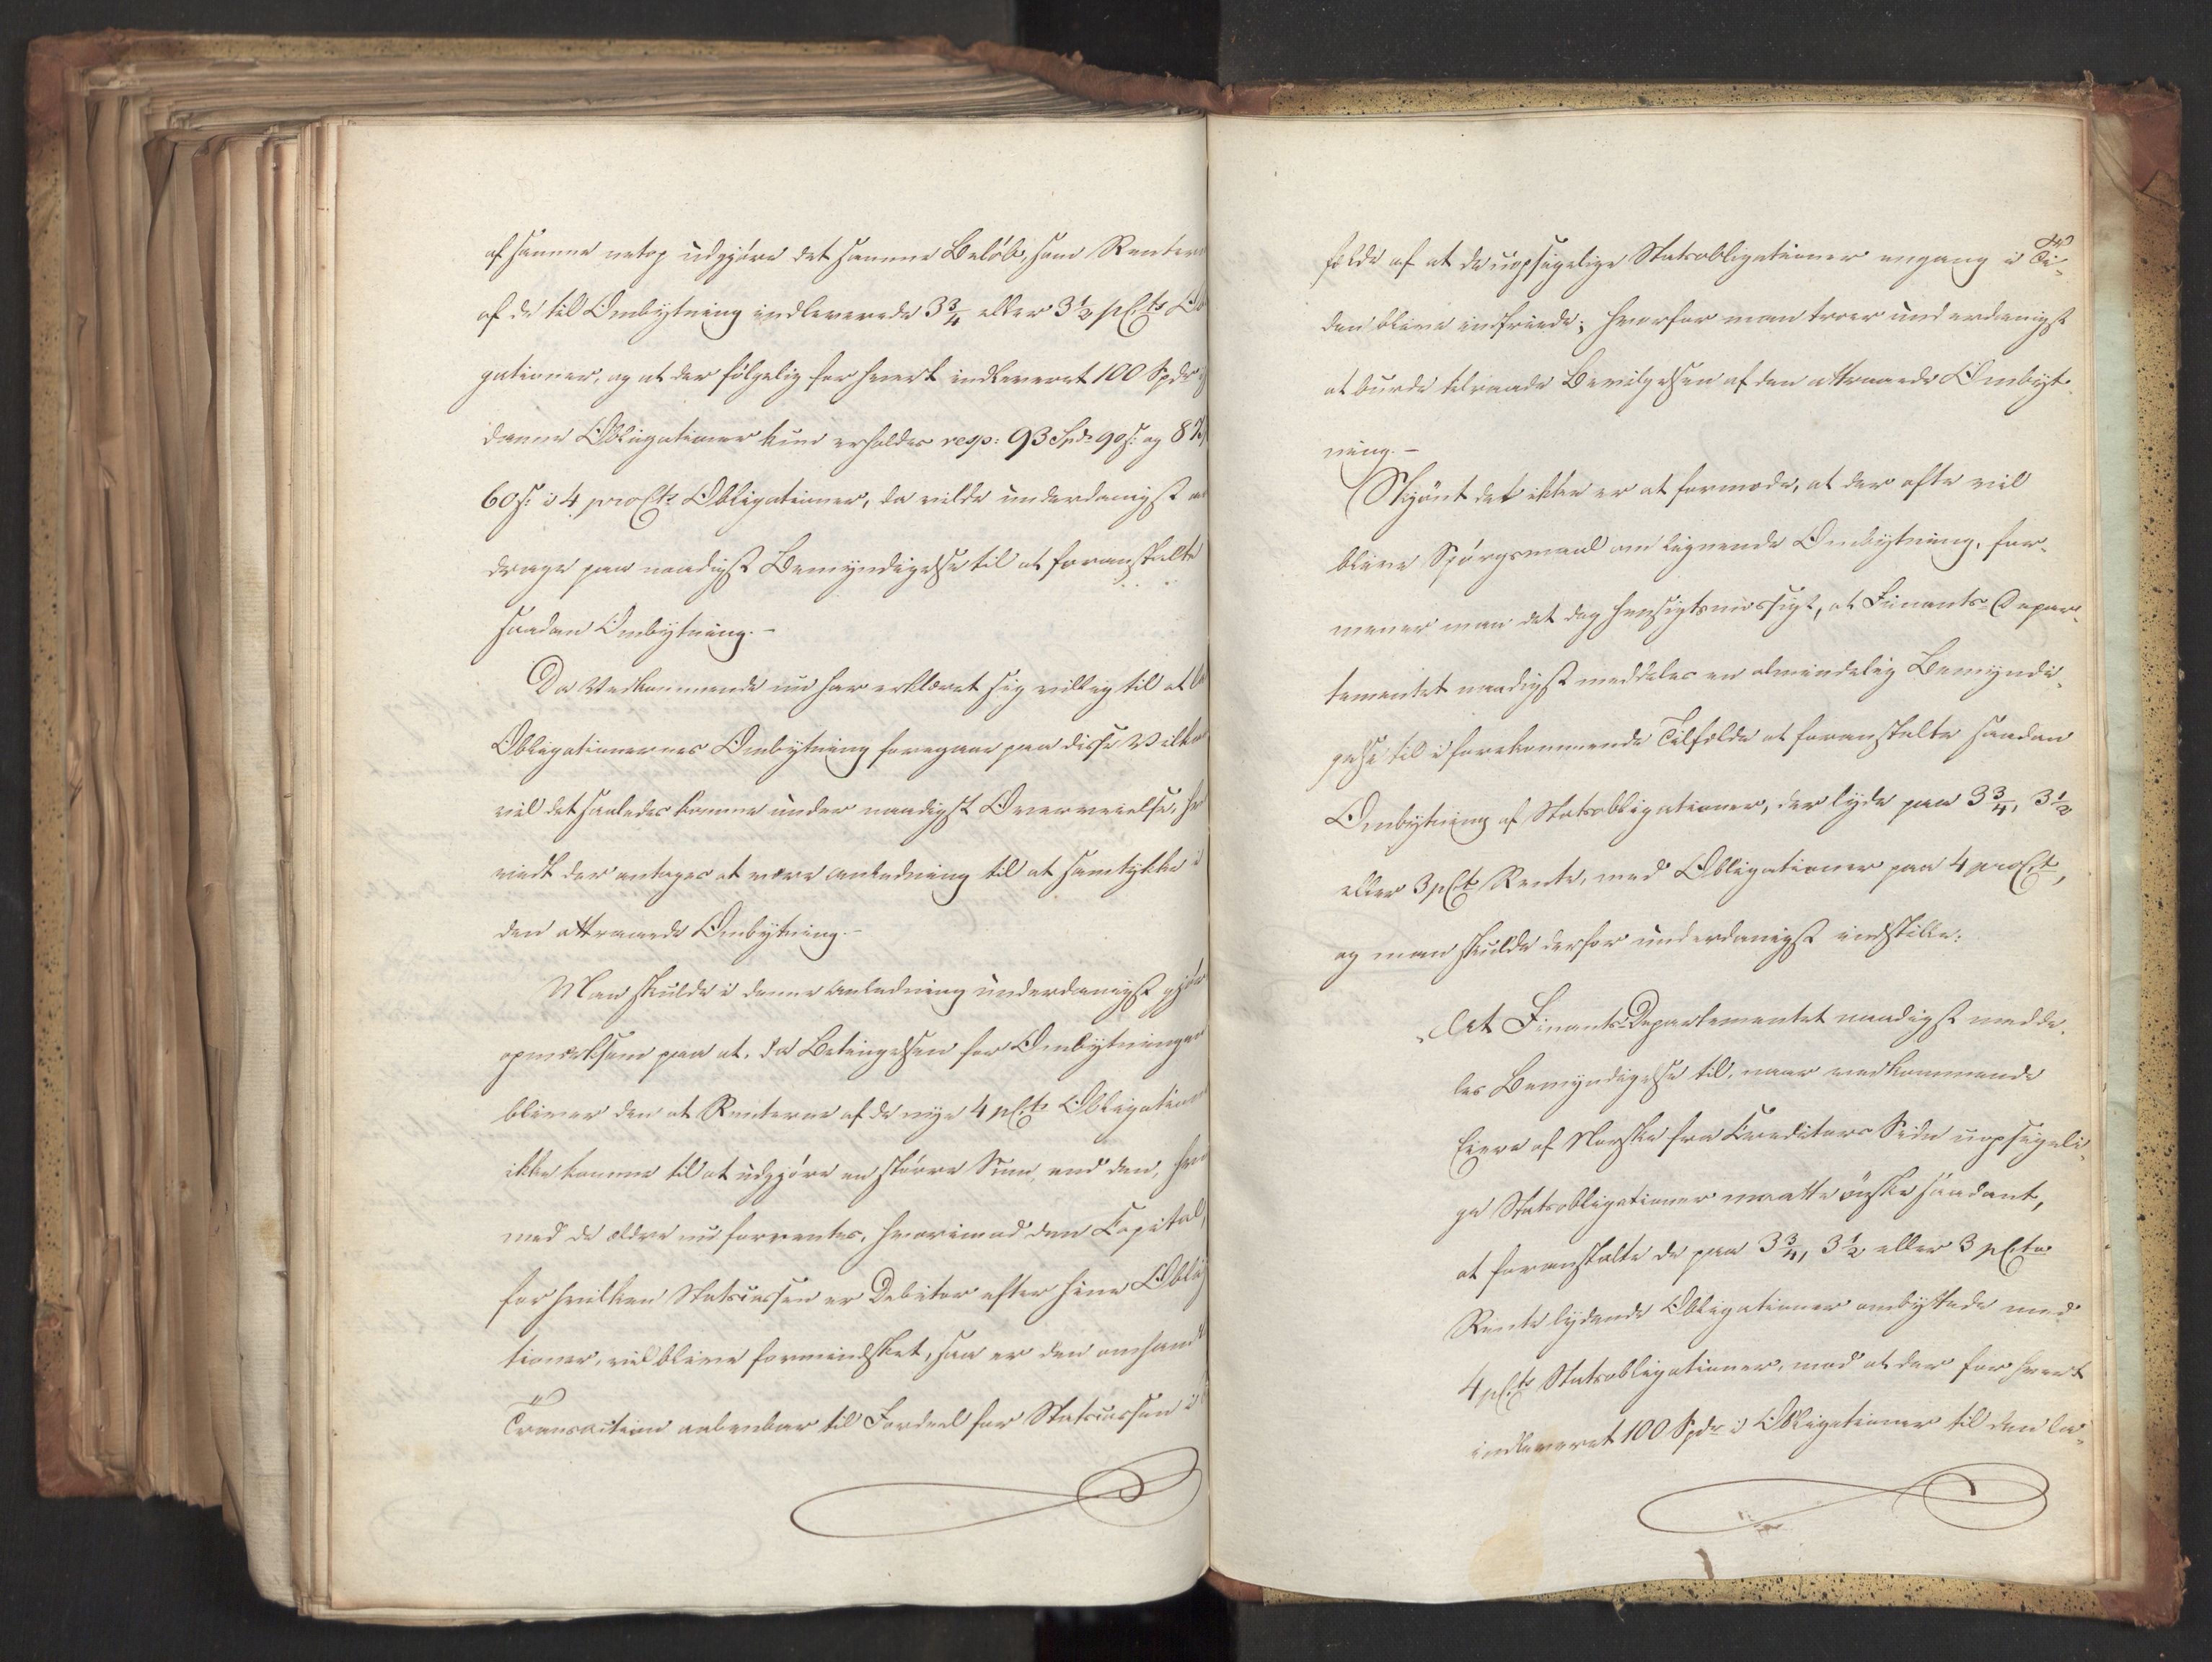 af samme netop udgjøre det samme Beløb, som Renterne
af de til Ombytning indleverede 3 3/4 eller 3 1/2 pCts Ob
gationer, og at der følgelig for hvert indleveret 100 Spdr
danne Obligationer kun erholdes resp: 93 Spd 90 s: og 87
60 s: i 4 proCts Obligationer, da vilde underdanigst an
drage paa naadigst Bemyndigelse til at foranstalte
saadan Ombytning.-
Da Vedkommende nu har erklæret sig villig til at la
Obligationernes Ombytning foregaae paa disse Vilka
vil det saaledes komme under naadigst Overveielse, hv
vidt der antages at være Anledning til at samtykke i
den attraaede Ombytning.-
Man skulde i denne Anledning underdanigst gjøre
opmærksom paa at, da Betingelsen for Ombytningen
bliver den at Renterne af de nye 4 pCts Obligatione
ikke komme til at udgjøre en større Sum, end den, hvo
med de ældre nu forrentes, hvorimod den Capital,
for hvilken Statscassen er Debitor efter hine Oblig
tioner, vil blive formindsket, saa er den omhand
Transaction aabenbar til Fordeel for Statscassen i
fælde af at de uopsigelige Statsobligationer engang i Ti-
den blive indfriede; hvorfor man troer underdanigst
at burde tilraade Bevilgelsen af den attraaede Ombyt-
ning.-
Skjønt det ikke er at formode, at der ofte vil
blive Spørgsmaal om lignende Ombytning, for-
mener man det dog hensigtsmæssigt, at Finants-Depar-
tementet naadigst meddeles en almindelig Bemyndi-
gelse til i forekommende Tilfælde at foranstalte saadan
Ombytning af Statsobligationer, der lyde paa 3 3/4, 3 1/2
eller 3 pCt Rente, med Obligationer paa 4 proCt,
og man skulde derfor underdanigst indstille:
"At Finants-Departementet naadigst medde-
les Bemyndigelse til, naar vedkommende
Eiere af Norske fra Creditors Side uopsigeli-
ge Statsobligationer maatte ønske saadant,
at foranstalte de paa 3 3/4, 3 1/2 eller 3 pCto
Rente lydende Obligationer ombyttede med
4 pCts Statsobligationer, mod at der for hvert
indleveret 100 Spdr i Obligationer til den la-